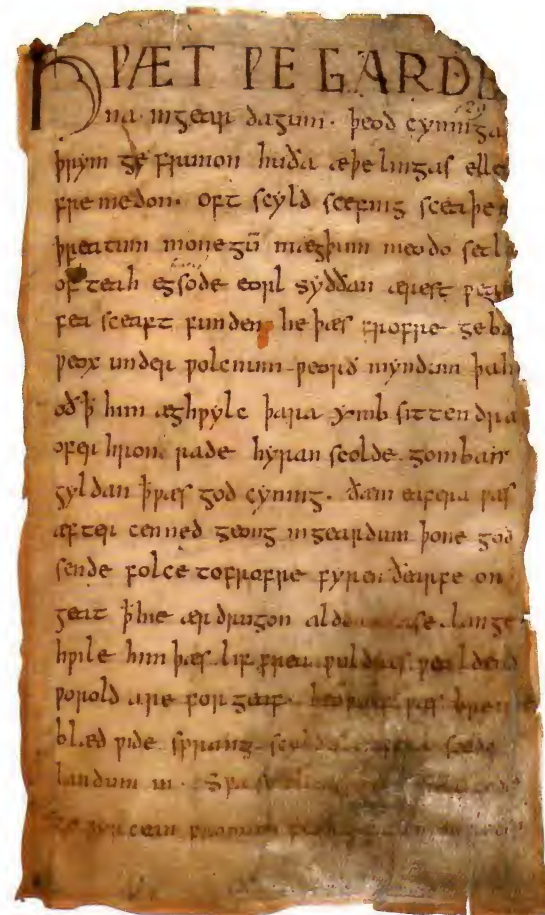 HǷÆT ǷE GARDE
na ingear dagum. þeod cyninga
þrym ge frunon huða æþelingas elle
fremedon. oft scyld scefing sceaþe
þreatum monegū mægþum meodo setla
of teah egsode eorl syððan ærest ƿear
fea sceaft funden he þæs frofre geba
ƿeox under ƿolcnum ƿeorð myndum þah
oð ꝥ him æghƿylc þara ymb sittendra
ofer hron rade hyran scolde gomban
gyldan ꝥ ƿæs god cyning. ðam eafera ƿæs
æfter cenned geong ingeardum þone god
sende folce tofrofre fyren ðearfe on
geat ꝥ hie ær drugon aldor ase. lange
hƿile him þæs lif frea ƿuldres ƿealdend
ƿorold are for geaf. beoƿulf ƿæs breme
blæd ƿide sprang scyldes eafera scede
landum in. Sƿa
ge ƿyrcean fromum